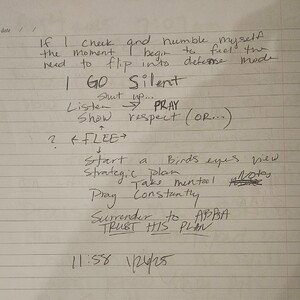 date / /
If I check and humble myself
the moment I begin to feel the
need to flip into defense mode
I GO Silent
Shut up...
Listen → PRAY
Show respect (OR...)
? ← FLEE →
Start a birds eyes view
Strategic plan
Take mental Notes
Pray Constantly
Surrender to ABBA
TRUST HIS PLAN
11:58 1/26/25